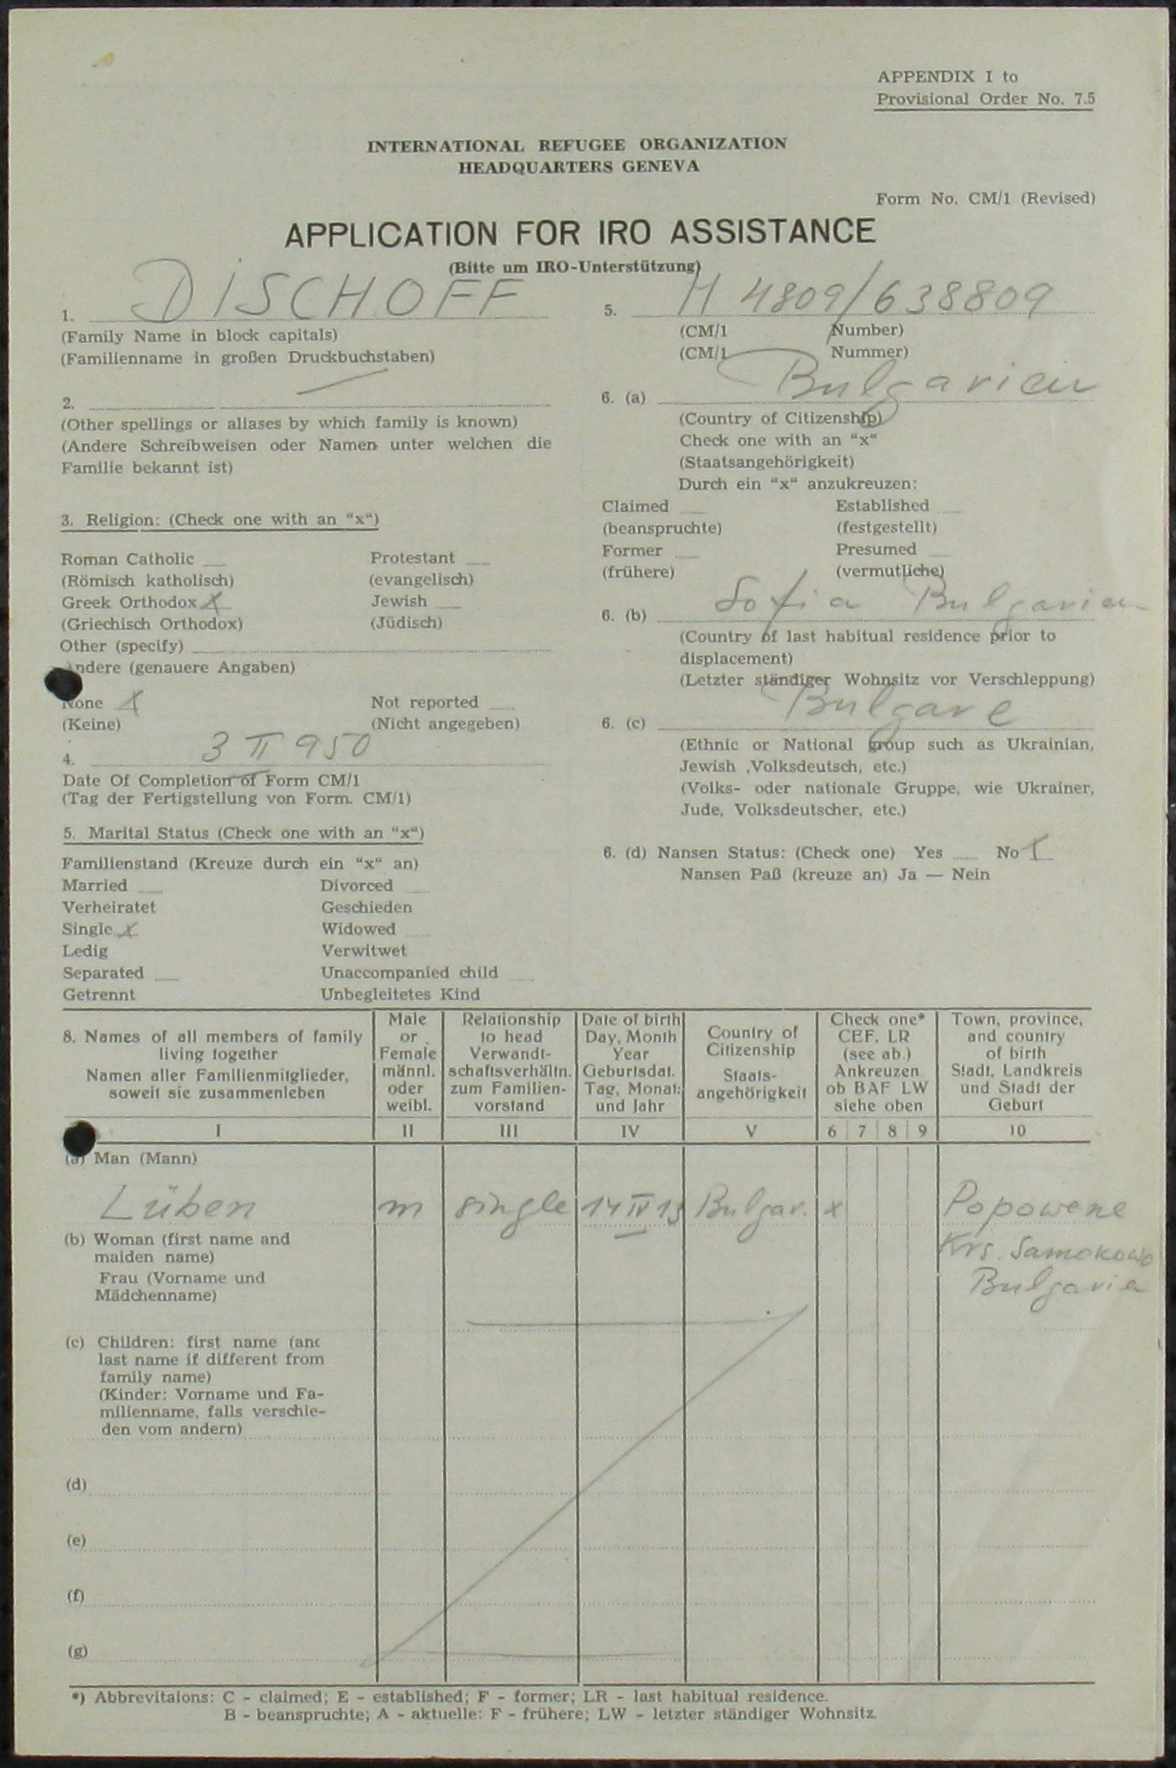 APPENDIX I to
Provisional Order No. 7.5
INTERNATIONAL REFUGEE ORGANIZATION
HEADQUARTERS GENEVA
Form No. CM/1 (Revised)
APPLICATION FOR IRO ASSISTANCE
(Bitte um IRO-Unterstützung)
1. DISCHOFF
(Family Name in block capitals)
(Familienname in großen Druckbuchstaben)
2.
(Other spellings or aliases by which family is known)
(Andere Schreibweisen oder Namen unter welchen die
Familie bekannt ist)
3. Religion: (Check one with an "x")
Roman Catholic Protestant
(Römisch katholisch) (evangelisch)
Greek Orthodox x Jewish
(Griechisch Orthodox) (Jüdisch)
Other (specify)
Andere (genauere Angaben)
None x Not reported
(Keine) (Nicht angegeben)
4. 3 II 950
Date Of Completion of Form CM/1
(Tag der Fertigstellung von Form. CM/1)
5. Marital Status (Check one with an "x")
Familienstand (Kreuze durch ein "x" an)
Married Divorced
Verheiratet Geschieden
Single x Widowed
Ledig Verwitwet
Separated Unaccompanied child
Getrennt Unbegleitetes Kind
5. H 4809/638809
(CM/1 Number)
(CM/1 Nummer)
6. (a) Bulgarien
(Country of Citizenship)
Check one with an "x"
(Staatsangehörigkeit)
Durch ein "x" anzukreuzen:
Claimed Established
(beanspruchte) (festgestellt)
Former Presumed
(frühere) (vermutliche)
6. (b) Sofia Bulgarien
(Country of last habitual residence prior to
displacement)
(Letzter ständiger Wohnsitz vor Verschleppung)
6. (c) Bulgare
(Ethnic or National group such as Ukrainian,
Jewish ,Volksdeutsch, etc.)
(Volks- oder nationale Gruppe, wie Ukrainer,
Jude, Volksdeutscher, etc.)
6. (d) Nansen Status: (Check one) Yes No x
Nansen Paß (kreuze an) Ja — Nein
8. Names of all members of family
living together
Namen aller Familienmitglieder,
soweit sie zusammenleben
Male
or
Female
männl.
oder
weibl.
Relationship
to head
Verwandt-
schaftsverhältn.
zum Familien-
vorstand
Date of birth
Day, Month
Year
Geburtsdat.
Tag, Monat:
und Jahr
Country of
Citizenship
Staats-
angehörigkeit
Check one*
CEF, LR
(see ab.)
Ankreuzen
ob BAF LW
siehe oben
Town, province,
and country
of birth
Stadt, Landkreis
und Stadt der
Geburt
I II III IV V 6 7 8 9 10
(a) Man (Mann)
Lüben m single 14 IV 13 Bulgar. x Popowene
Krs. Samokowo
Bulgarien
(b) Woman (first name and
maiden name)
Frau (Vorname und
Mädchenname)
(c) Children: first name (anc
last name if different from
family name)
(Kinder: Vorname und Fa-
milienname, falls verschie-
den vom andern)
(d)
(e)
(f)
(g)
*) Abbrevitaions: C - claimed; E - established; F - former; LR - last habitual residence.
B - beanspruchte; A - aktuelle: F - frühere; LW - letzter ständiger Wohnsitz